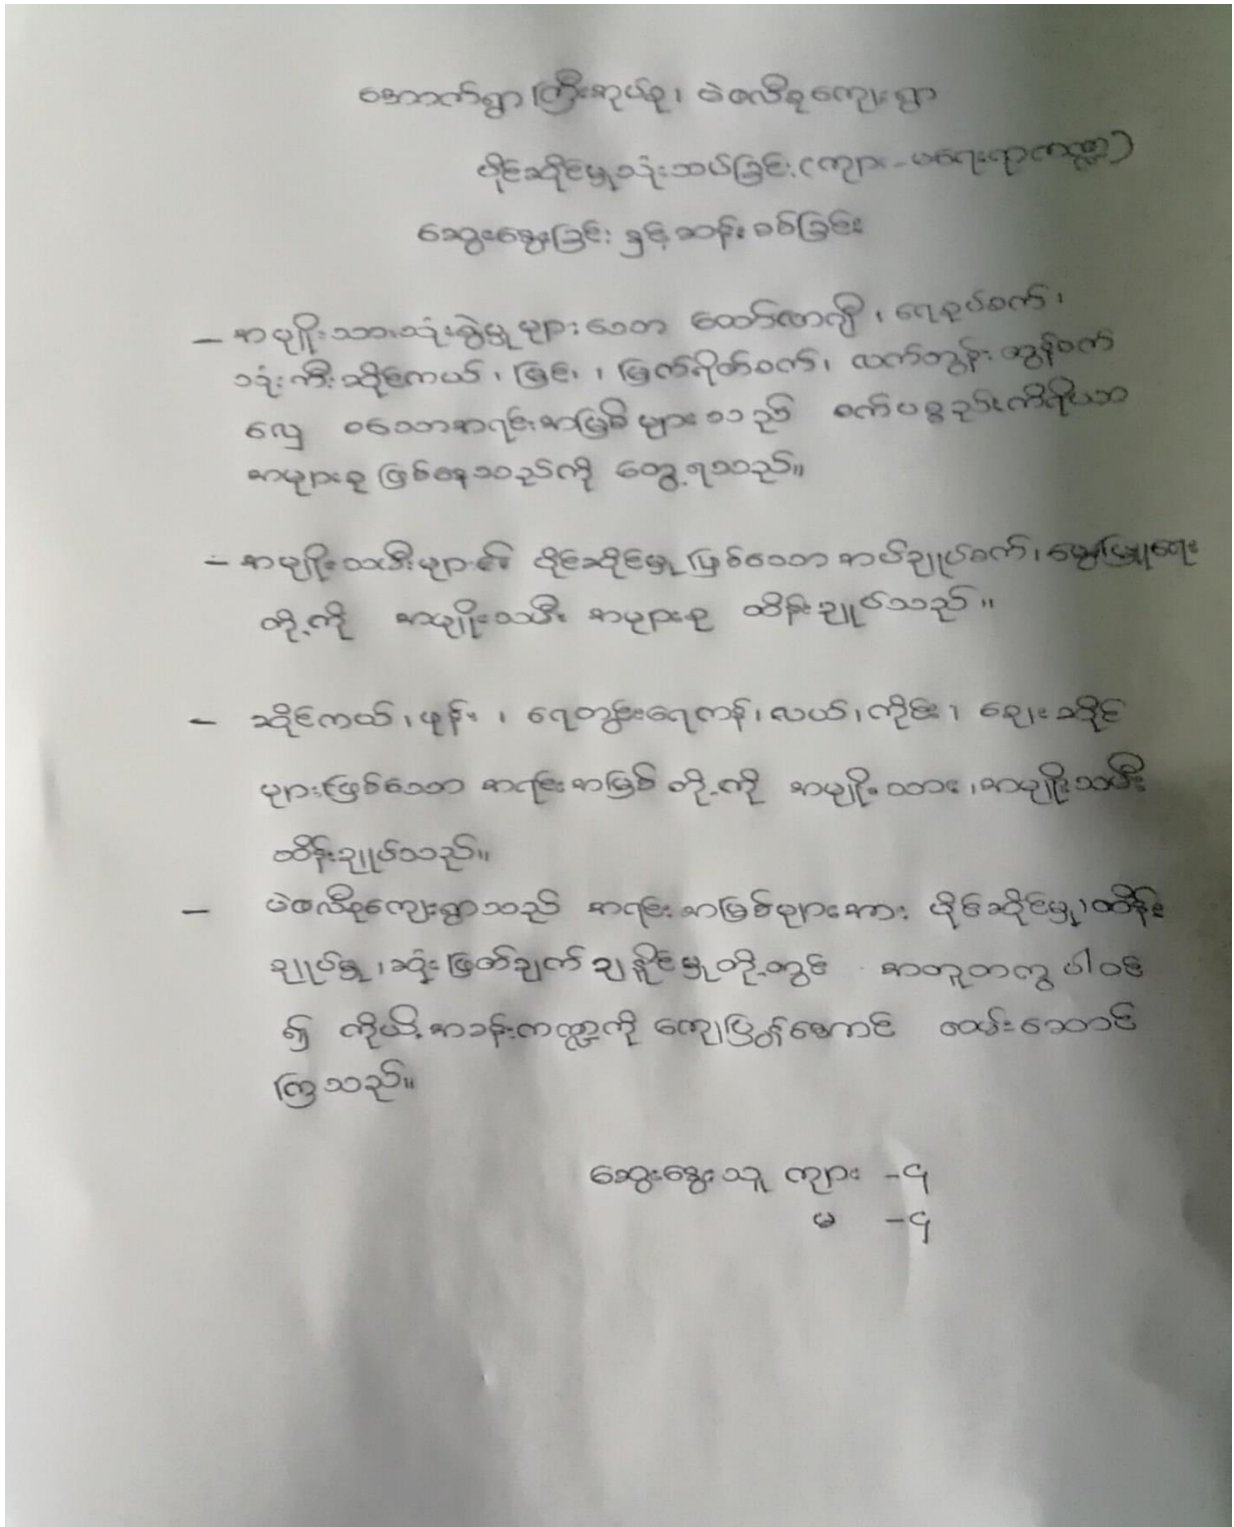 အောက်ရွာကြီးအုပ်စု၊ ပဲဇလီစုကျေးရွာ
ပိုင်ဆိုင်မှုသုံးသပ်ခြင်း (ကျား-မရေးရာကဏ္ဍ)
ဆွေးနွေးခြင်း နှင့် ဆန်းစစ်ခြင်း
– အမျိုးသားသုံးစွဲမှုများသော ထော်လာဂျီ၊ ရေစုပ်စက်၊
သုံးဘီးဆိုင်ကယ်၊ မြင်း၊ မြက်ရိတ်စက်၊ လက်တွန်းထွန်စက်
လှေ စသောအရင်းအမြစ်များသည် စက်ပစ္စည်းကိရိယာ
အများစုဖြစ်နေသည်ကို တွေ့ရသည်။
– အမျိုးသမီးများ၏ ပိုင်ဆိုင်မှုဖြစ်သော အပ်ချုပ်စက်၊ မွေးမြူရေး
တို့ကို အမျိုးသမီး အများစု ထိန်းချုပ်သည်။
– ဆိုင်ကယ်၊ ဖုန်း ၊ ရေတွင်းရေကန်၊ လယ်၊ ကိုင်း၊ ဈေးဆိုင်
များဖြစ်သော အရင်းအမြစ်တို့ကို အမျိုးသား၊ အမျိုးသမီး
ထိန်းချုပ်သည်။
– ပဲဇလီစုကျေးရွာသည် အရင်းအမြစ်များအား ပိုင်ဆိုင်မှု၊ ထိန်း
ချုပ်မှု၊ ဆုံးဖြတ်ချက်ချနိုင်မှုတို့တွင် အတူတကွ ပါဝင်
၍ ကိုယ့်အခန်းကဏ္ဍကို ကျေပြွန်အောင် ထမ်းဆောင်
ကြသည်။
ဆွေးနွေးသူ ကျား -၄
မ -၄